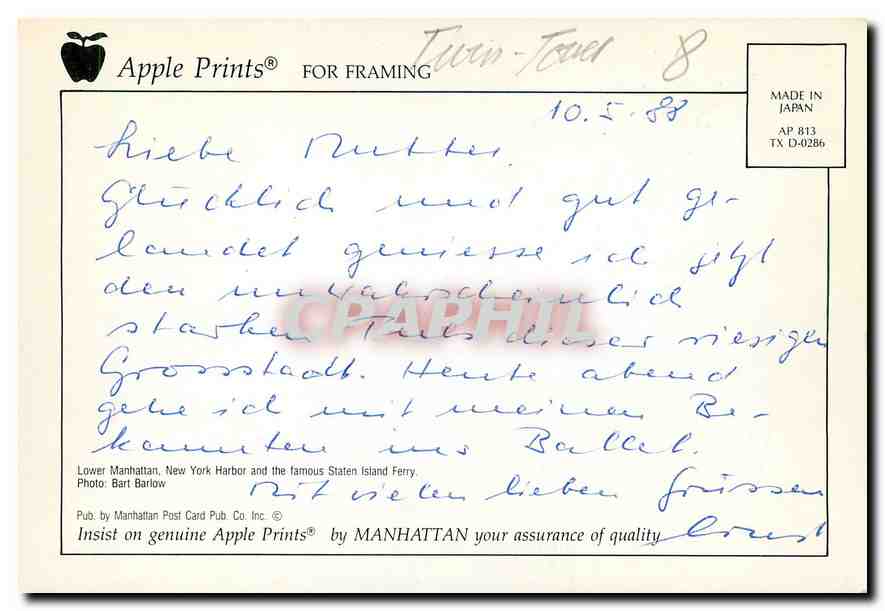 Apple Prints® FOR FRAMING
Twin-Tower 8
MADE IN
JAPAN
AP 813
TX D-0286
10.5.88
Liebe Mutter.
Glücklich und gut ge-
landet geniesse ich jetzt
den unwahrscheinlich
starken Puls dieser riesigen
Grossstadt. Heute abend
gehe ich mit meinen Be-
kannten ins Ballet.
Mit vielen lieben Grüssen
CPAPHIL
Lower Manhattan, New York Harbor and the famous Staten Island Ferry.
Photo: Bart Barlow
Pub. by Manhattan Post Card Pub. Co. Inc. ©
Insist on genuine Apple Prints® by MANHATTAN your assurance of quality